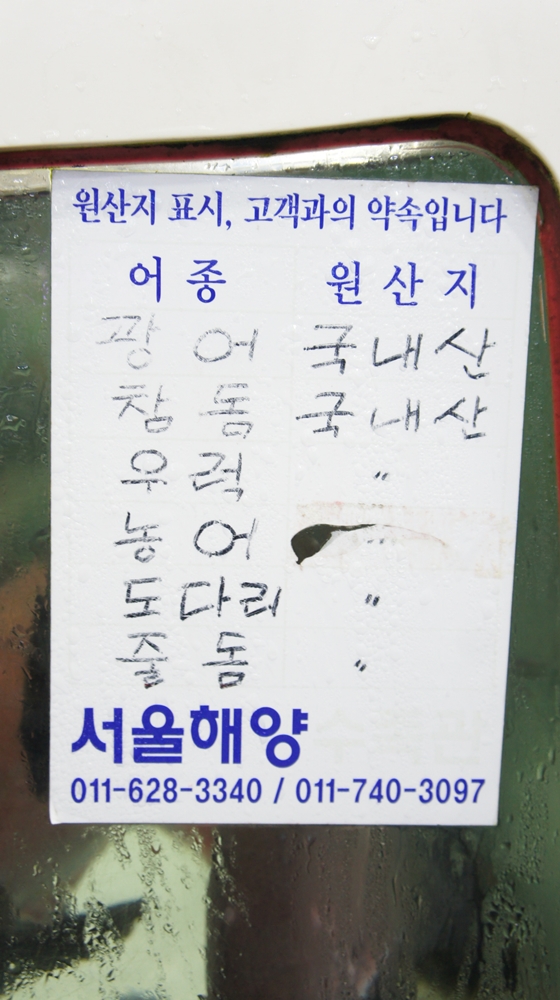 원산지 표시, 고객과의 약속입니다
어종 원산지
광어 국내산
참돔 국내산
우럭 〃
농어 〃
도다리 〃
줄돔 〃
서울해양
011-628-3340 / 011-740-3097